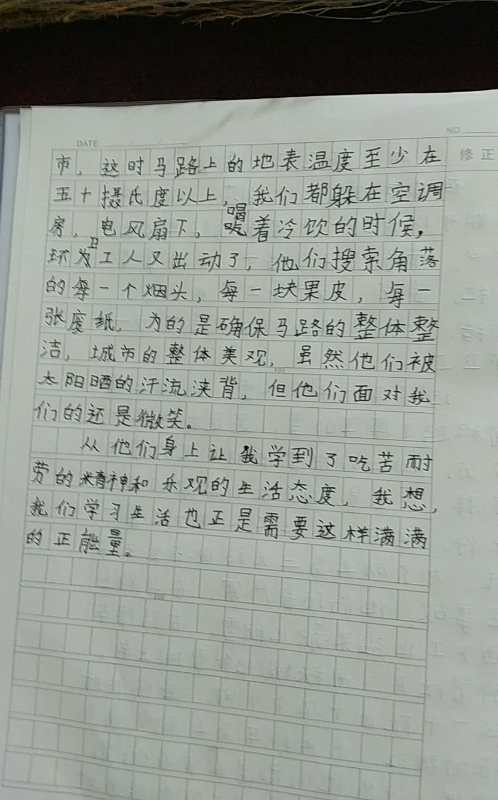 DATE
NO
修正
市，这时马路上的地表温度至少在
五十摄氏度以上，我们都躲在空调
房，电风扇下，喝着冷饮的时候，
环卫工人又出动了，他们搜索角落
的每一个烟头，每一块果皮，每一
张废纸，为的是确保马路的整体整
洁，城市的整体美观，虽然他们被
太阳晒的汗流浃背，但他们面对我
们的还是微笑。
从他们身上让我学到了吃苦耐
劳的精神和乐观的生活态度，我想，
我们学习生活也正是需要这样满满
的正能量。